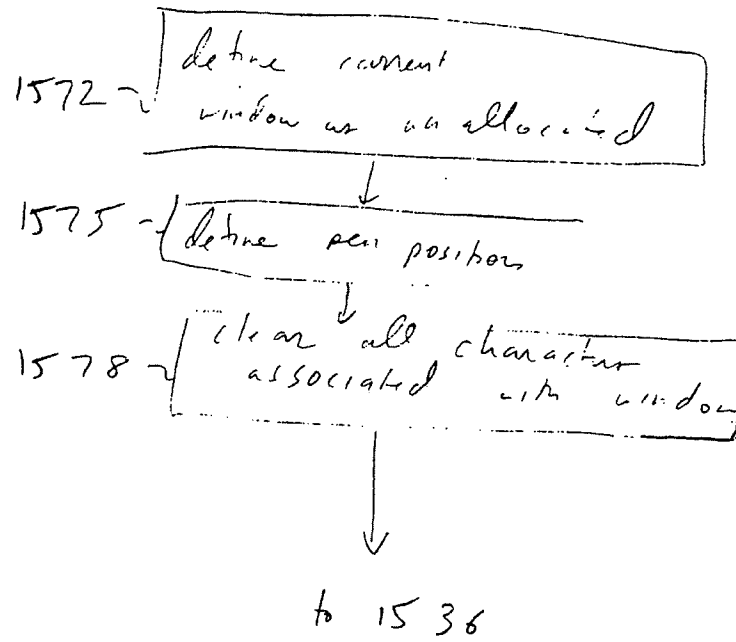 define current
1572
window as unallocated
1575
define pen positions
clear all characters
1578
associated with window
to 1536